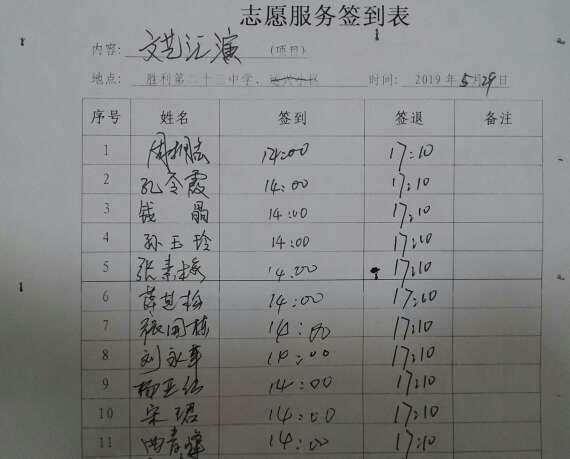 志愿服务签到表
内容: 文艺汇演 (项目)
地点: 胜利第二十三中学、 时间: 2019年5月29日
序号 姓名 签到 签退 备注
1 14:00 17:10
2 孔令霞 14:00 17:10
3 钱晶 14:00 17:10
4 孙玉玲 14:00 17:10
5 张素梅 14:00 17:10
6 14:00 17:10
7 张国栋 14:00 17:10
8 刘永军 14:00 17:10
9 14:00 17:10
10 宋珺 14:00 17:10
11 14:00 17:10